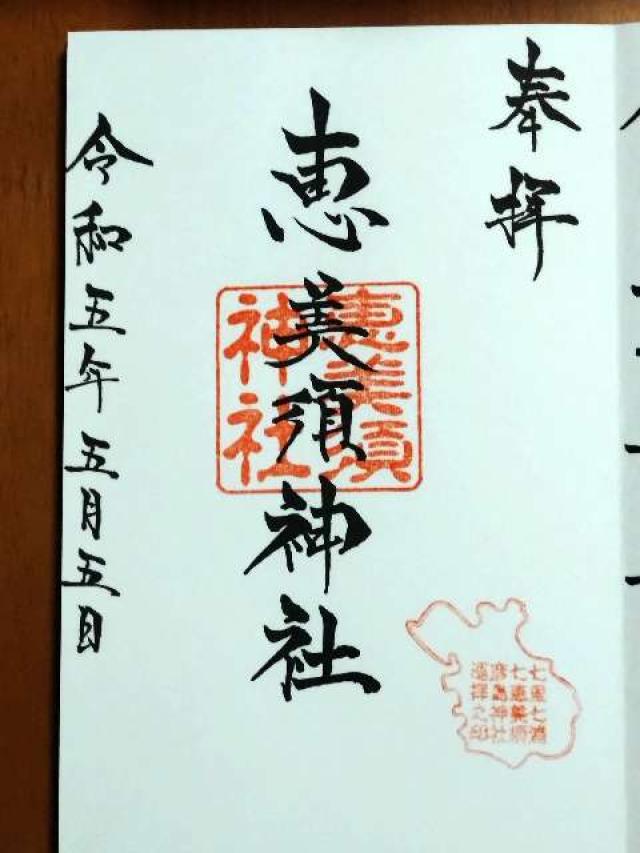 奉拝
恵美須神社
恵美須
神社
令和五年五月五日
七里七浦
七恵美須
島神社
巡拝之印